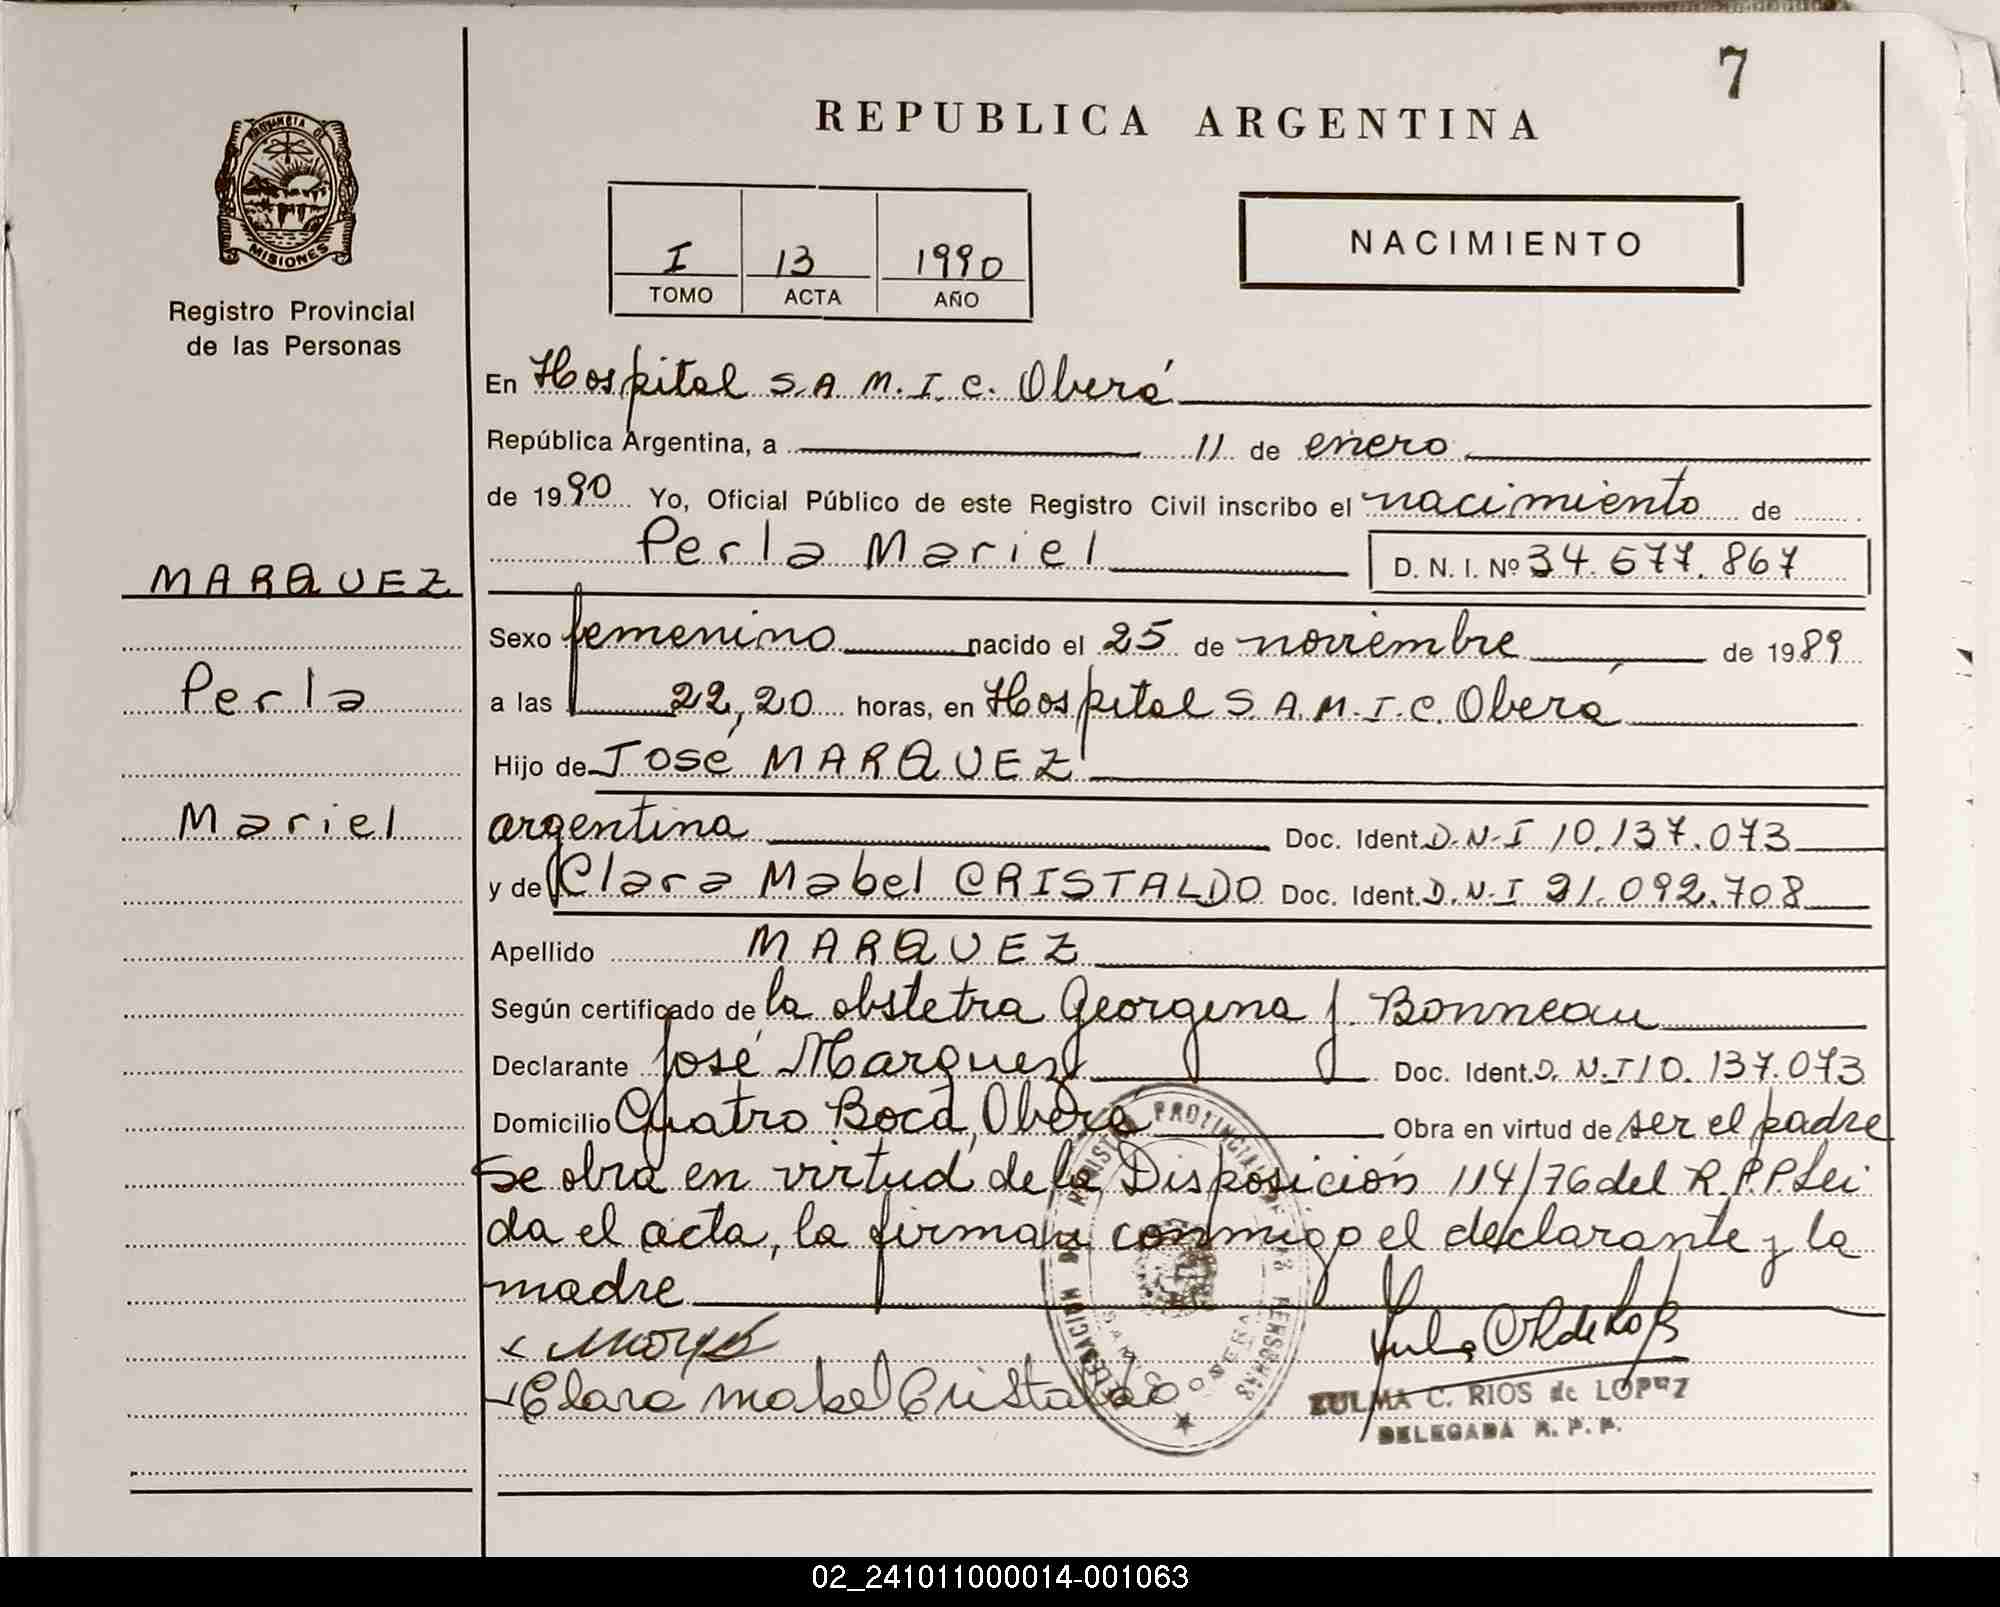 7
REPUBLICA ARGENTINA
PROVINCIA DE
MISIONES
Registro Provincial
de las Personas
I 13 1990
TOMO ACTA AÑO
NACIMIENTO
En Hospital S.A.M.I.C. Oberá
República Argentina, a 11 de enero
de 1990 Yo, Oficial Público de este Registro Civil inscribo el nacimiento de
Perla Mariel D.N.I. Nº 34.677.867
MARQUEZ
Perla
Mariel
Sexo femenino nacido el 25 de noviembre de 1989
a las 22,20 horas, en Hospital S.A.M.I.C. Oberá
Hijo de José MARQUEZ
argentina Doc. Ident. D.N.I 10.137.073
y de Clara Mabel CRISTALDO Doc. Ident. D.N.I 21.092.708
Apellido MARQUEZ
Según certificado de la obstetra Georgina J. Bonneau
Declarante José Marquez Doc. Ident. D.N.I 10.137.073
Domicilio Cuatro Boca, Oberá Obra en virtud de ser el padre
Se obra en virtud de la Disposición 114/76 del R.P.P. Lei
da el acta, la firman conmigo el declarante y la
madre
Clara mabel Cristaldo
DELEGACION DEL REGISTRO PROVINCIAL DE LAS PERSONAS
OBERA
ZULMA C. RIOS de LOPEZ
DELEGADA R.P.P.
02_241011000014-001063